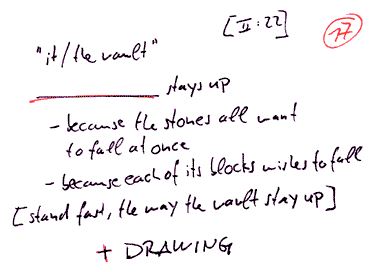 [II:22]
77
"it/the vault"
stays up
- because the stones all want
to fall at once
- because each of its blocks wishes to fall
[stand fast, the way the vault stay up]
+ DRAWING